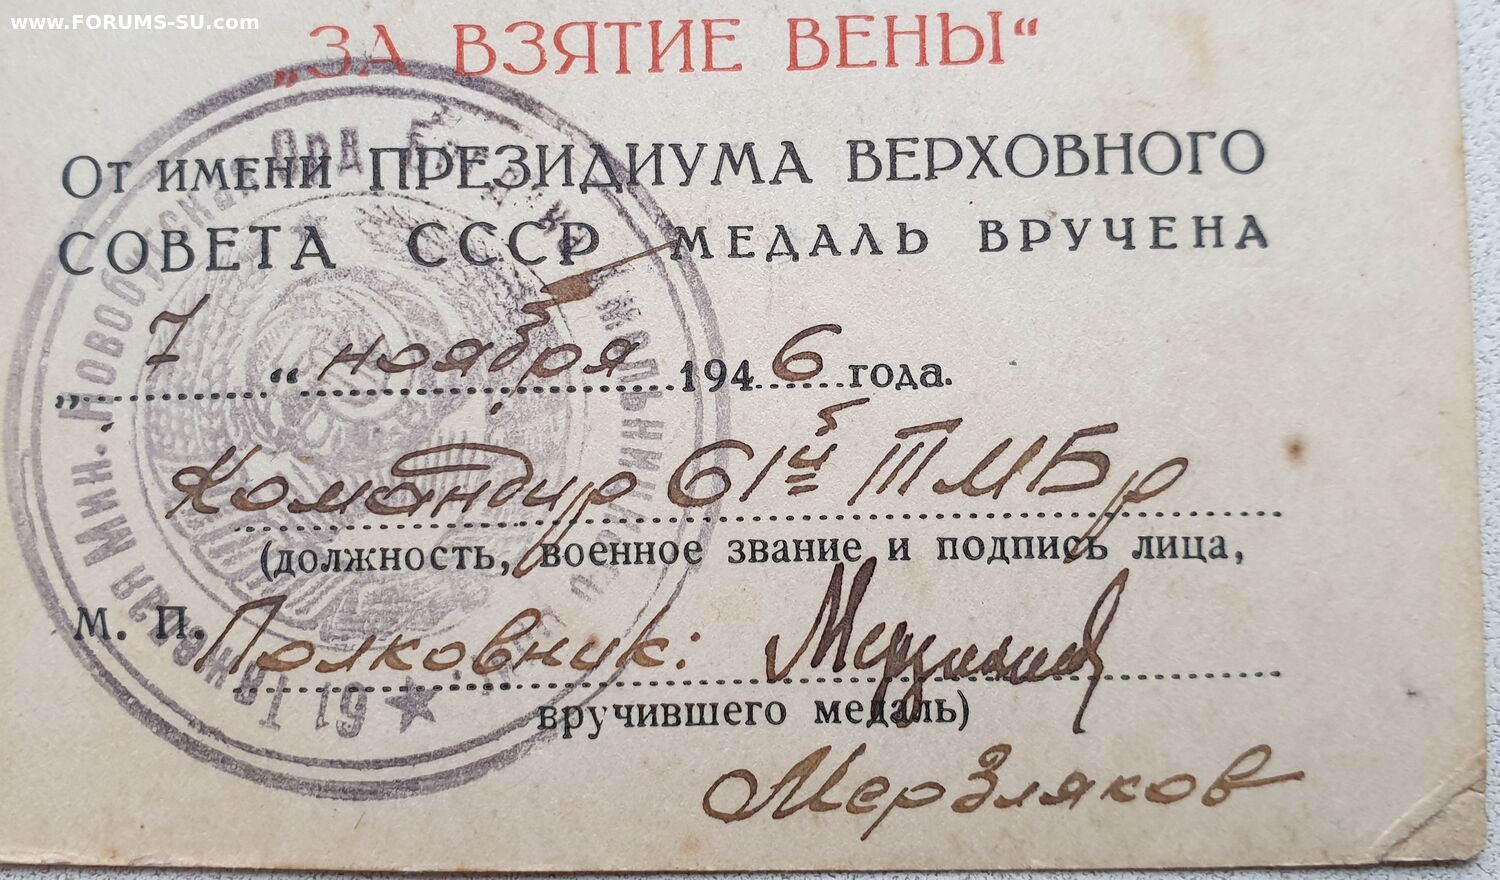 www.FORUMS-SU.com
„ЗА ВЗЯТИЕ ВЕНЫ“
От имени ПРЕЗИДИУМА ВЕРХОВНОГО
СОВЕТА СССР МЕДАЛЬ ВРУЧЕНА
„7“ ноября 1946 года.
Командир 61й ТМБр
(должность, военное звание и подпись лица,
М. П. Полковник:
вручившего медаль)
Мерзляков
61 Тяжелая Мин. Новобугская Орд.